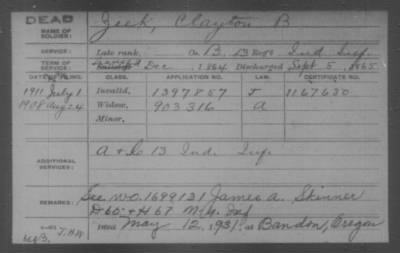 DEAD
NAME OF SOLDIER: Zeek, Clayton B
SERVICE: Late rank, Co. B, 13 Reg't Ind. Inf.
TERM OF SERVICE: Enrolled Dec 1864 Discharged Sept 5, 1865
DATE OF FILING. CLASS. APPLICATION NO. LAW. CERTIFICATE NO.
1911 July 1 Invalid, 1397857 J 1167630
1908 Aug 24 Widow, 903316 A
Minor,
ADDITIONAL SERVICES: A & C 13 Ind. Inf.
REMARKS: See W.O. 1699131 James A. Skinner
D 65 & H 67 N.Y. Inf
Died May 12, 1931, at Bandon, Oregon